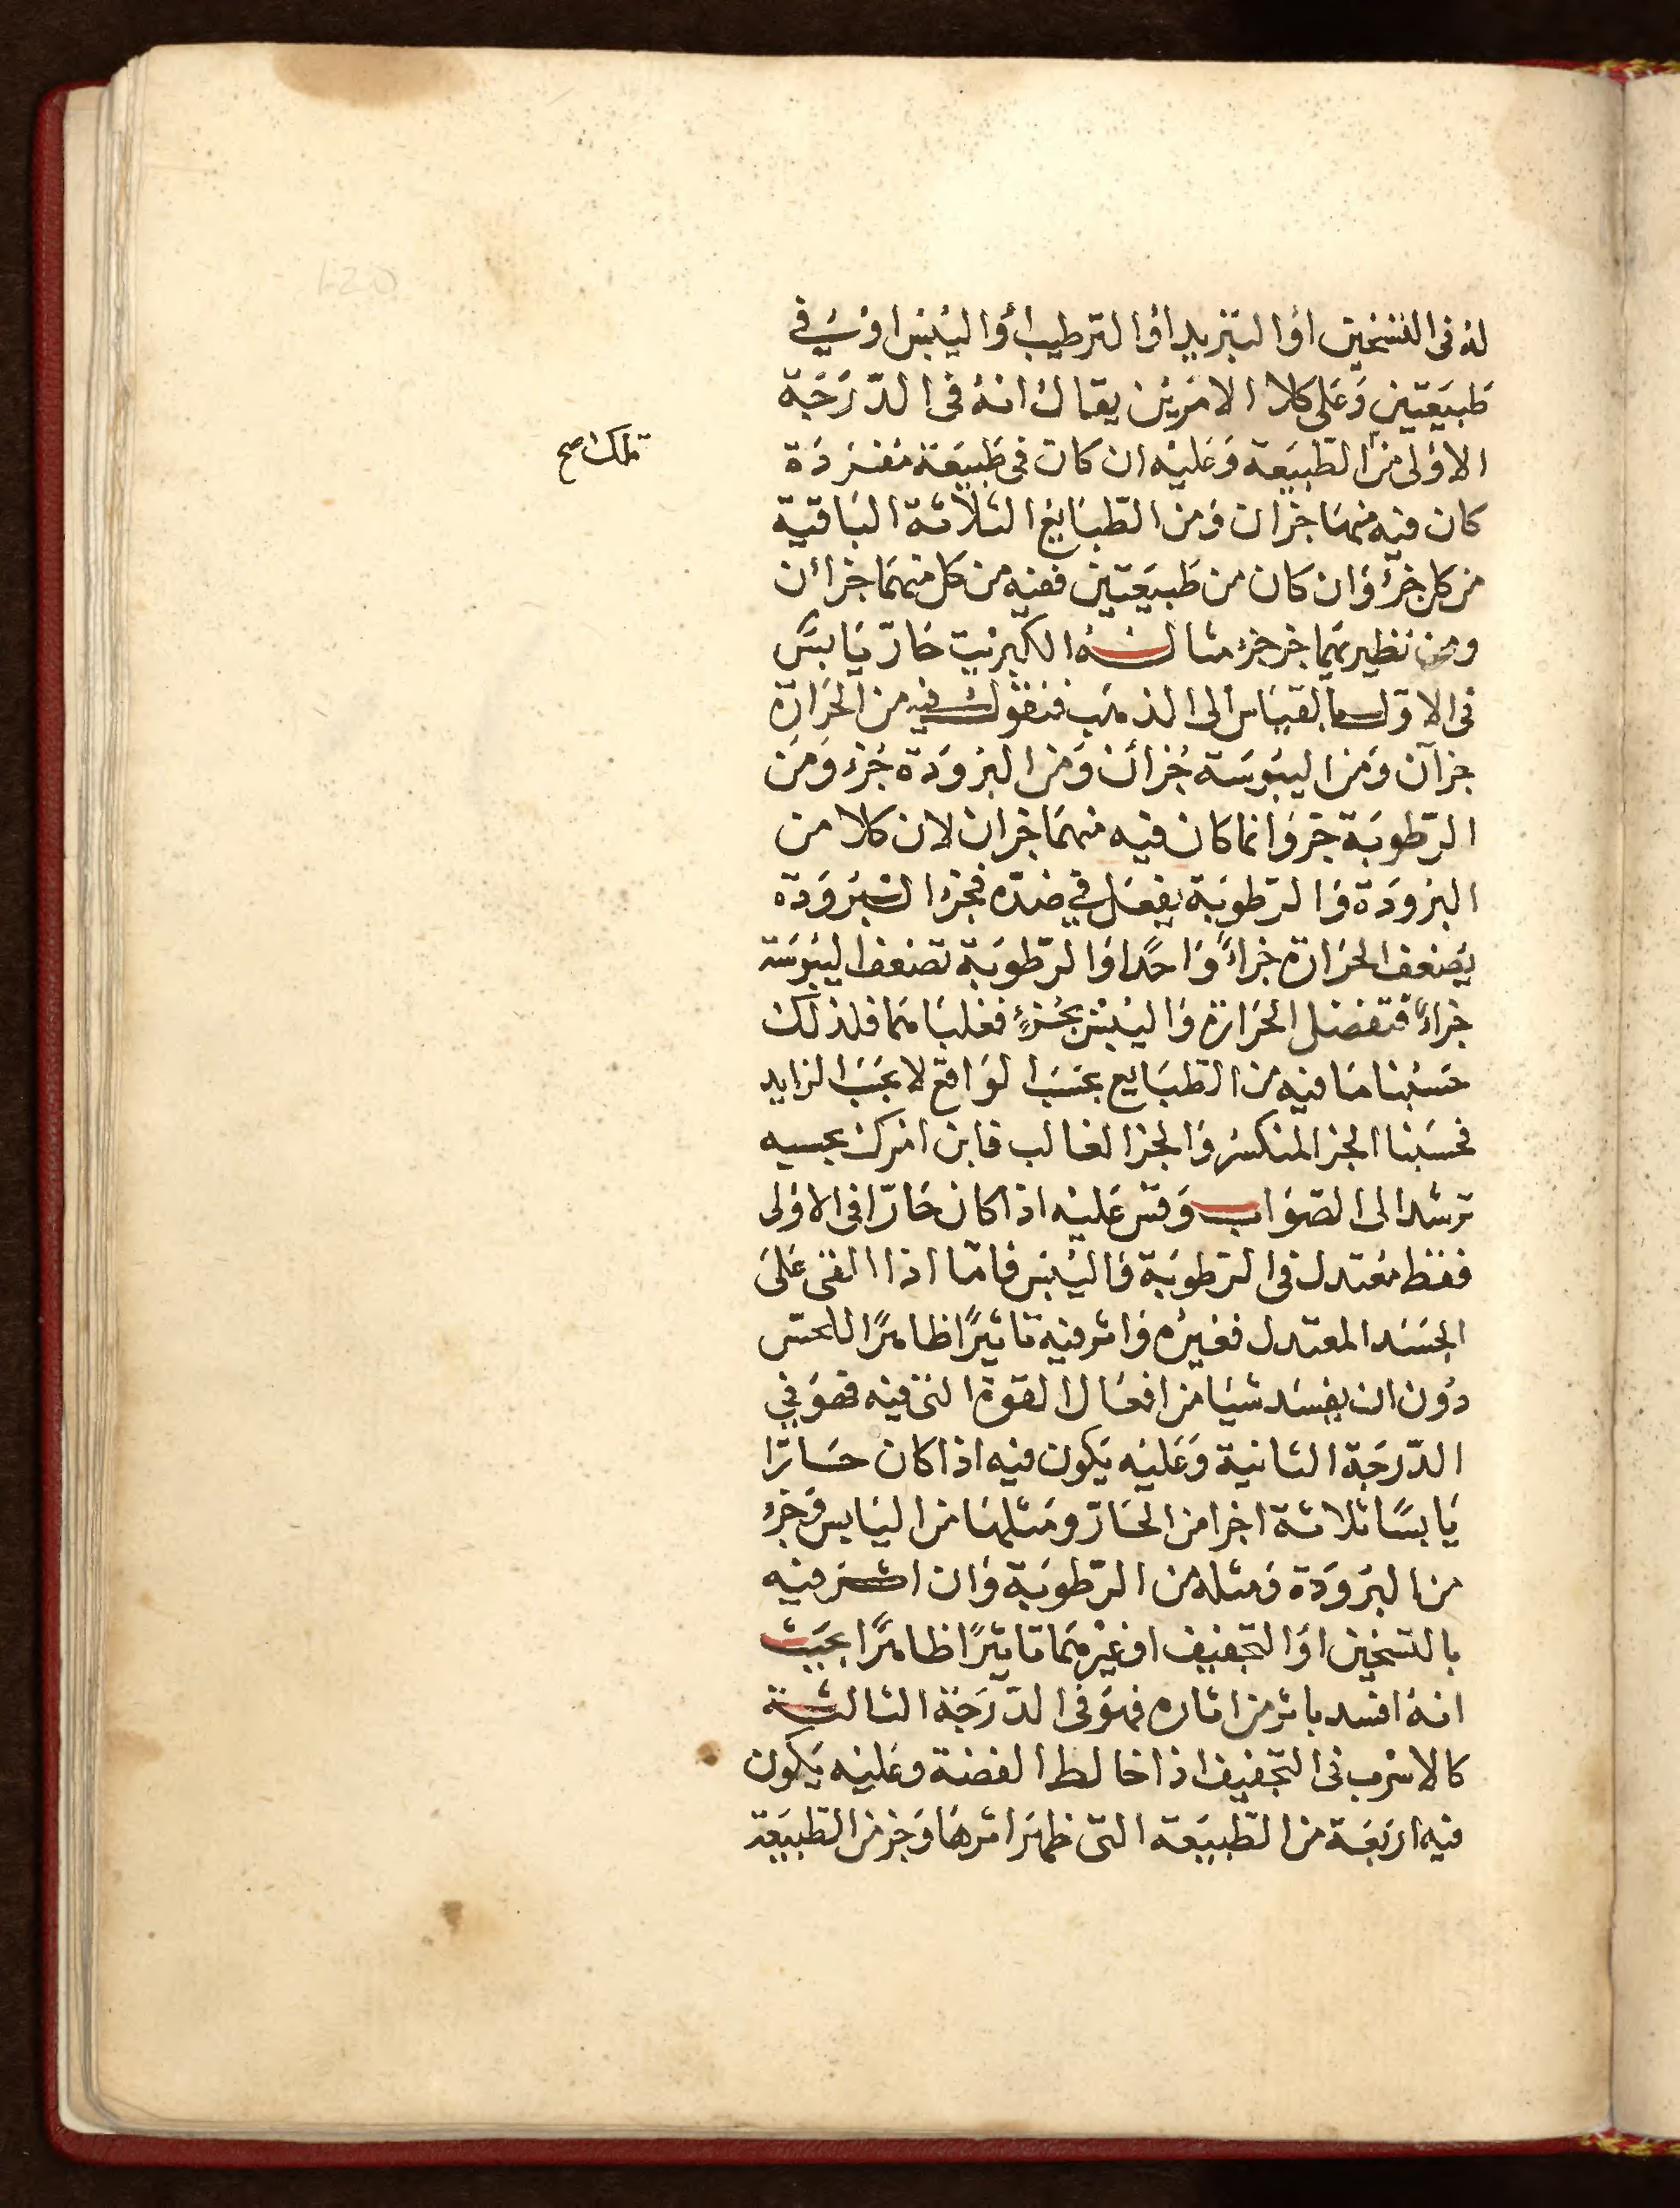 له فى التسخين او التبريد او الترطيب او اليبس او شى فى
طبيعتين وعلى كلا الامرين يقال انه فى الدّرجة
الاولى من الطبيعة وعليه ان كان فى طبيعة مفردة
تلك صح
كان فيه منها جزان ومن الطبايع الثلاثة الباقية
من كل جزء وان كان من طبيعتين ففيه من كل منهما جزائن
ومن نظيرتهما جز جزء مثاله الكبريت حارّ يابس
فى الاول بالقياس الى الذهب فنقول فيه من الحرارة
جزآن ومن اليبوسة جزائن ومن البرودة جزء ومن
الرّطوبة جز وانما كان فيه منهما جزان لان كلا من
البرودة والرّطوبة يفعل في ضدّه فجزء البرودة
يضعف الحرارة جزاءً واحدًا والرّطوبة تضعف اليبوسة
جزاءً فتفضل الحرارة واليبس بجزءٍ فغلباهما فلذلك
حسبنا ما فيه من الطبايع بحسب الواقع لا بحسب الزايد
فحسبنا الجز المنكسر والجز الغالب فابن امرك بحسبه
ترشد الى الصّواب وقس عليه اذا كان حارّا فى الاولى
فقط معتدل فى الرّطوبة واليبس فامّا اذا القى على
الجسد المعتدل فغيره واثر فيه تاثيرًا ظاهرًا للحسّ
دون ان يفسد شيا من افعال القوة التى فيه فهو في
الدّرجة الثانية وعليه يكون فيه اذا كان حارّا
يابسًا ثلاثة اجزا من الحارّ ومثلها من اليابس وجزء
من البرودة ومثله من الرّطوبة وان اثر فيه
بالتسخين او التجفيف او غيرهما تاثيرًا ظاهرًا بحيث
انه افسد باثر من اثاره فهو فى الدّرجة الثالثة
كالاسرب فى التّجفيف اذا خالط الفضة وعليه يكون
فيه اربعة من الطبيعة التى ظهر اثرها وجز من الطبيعة